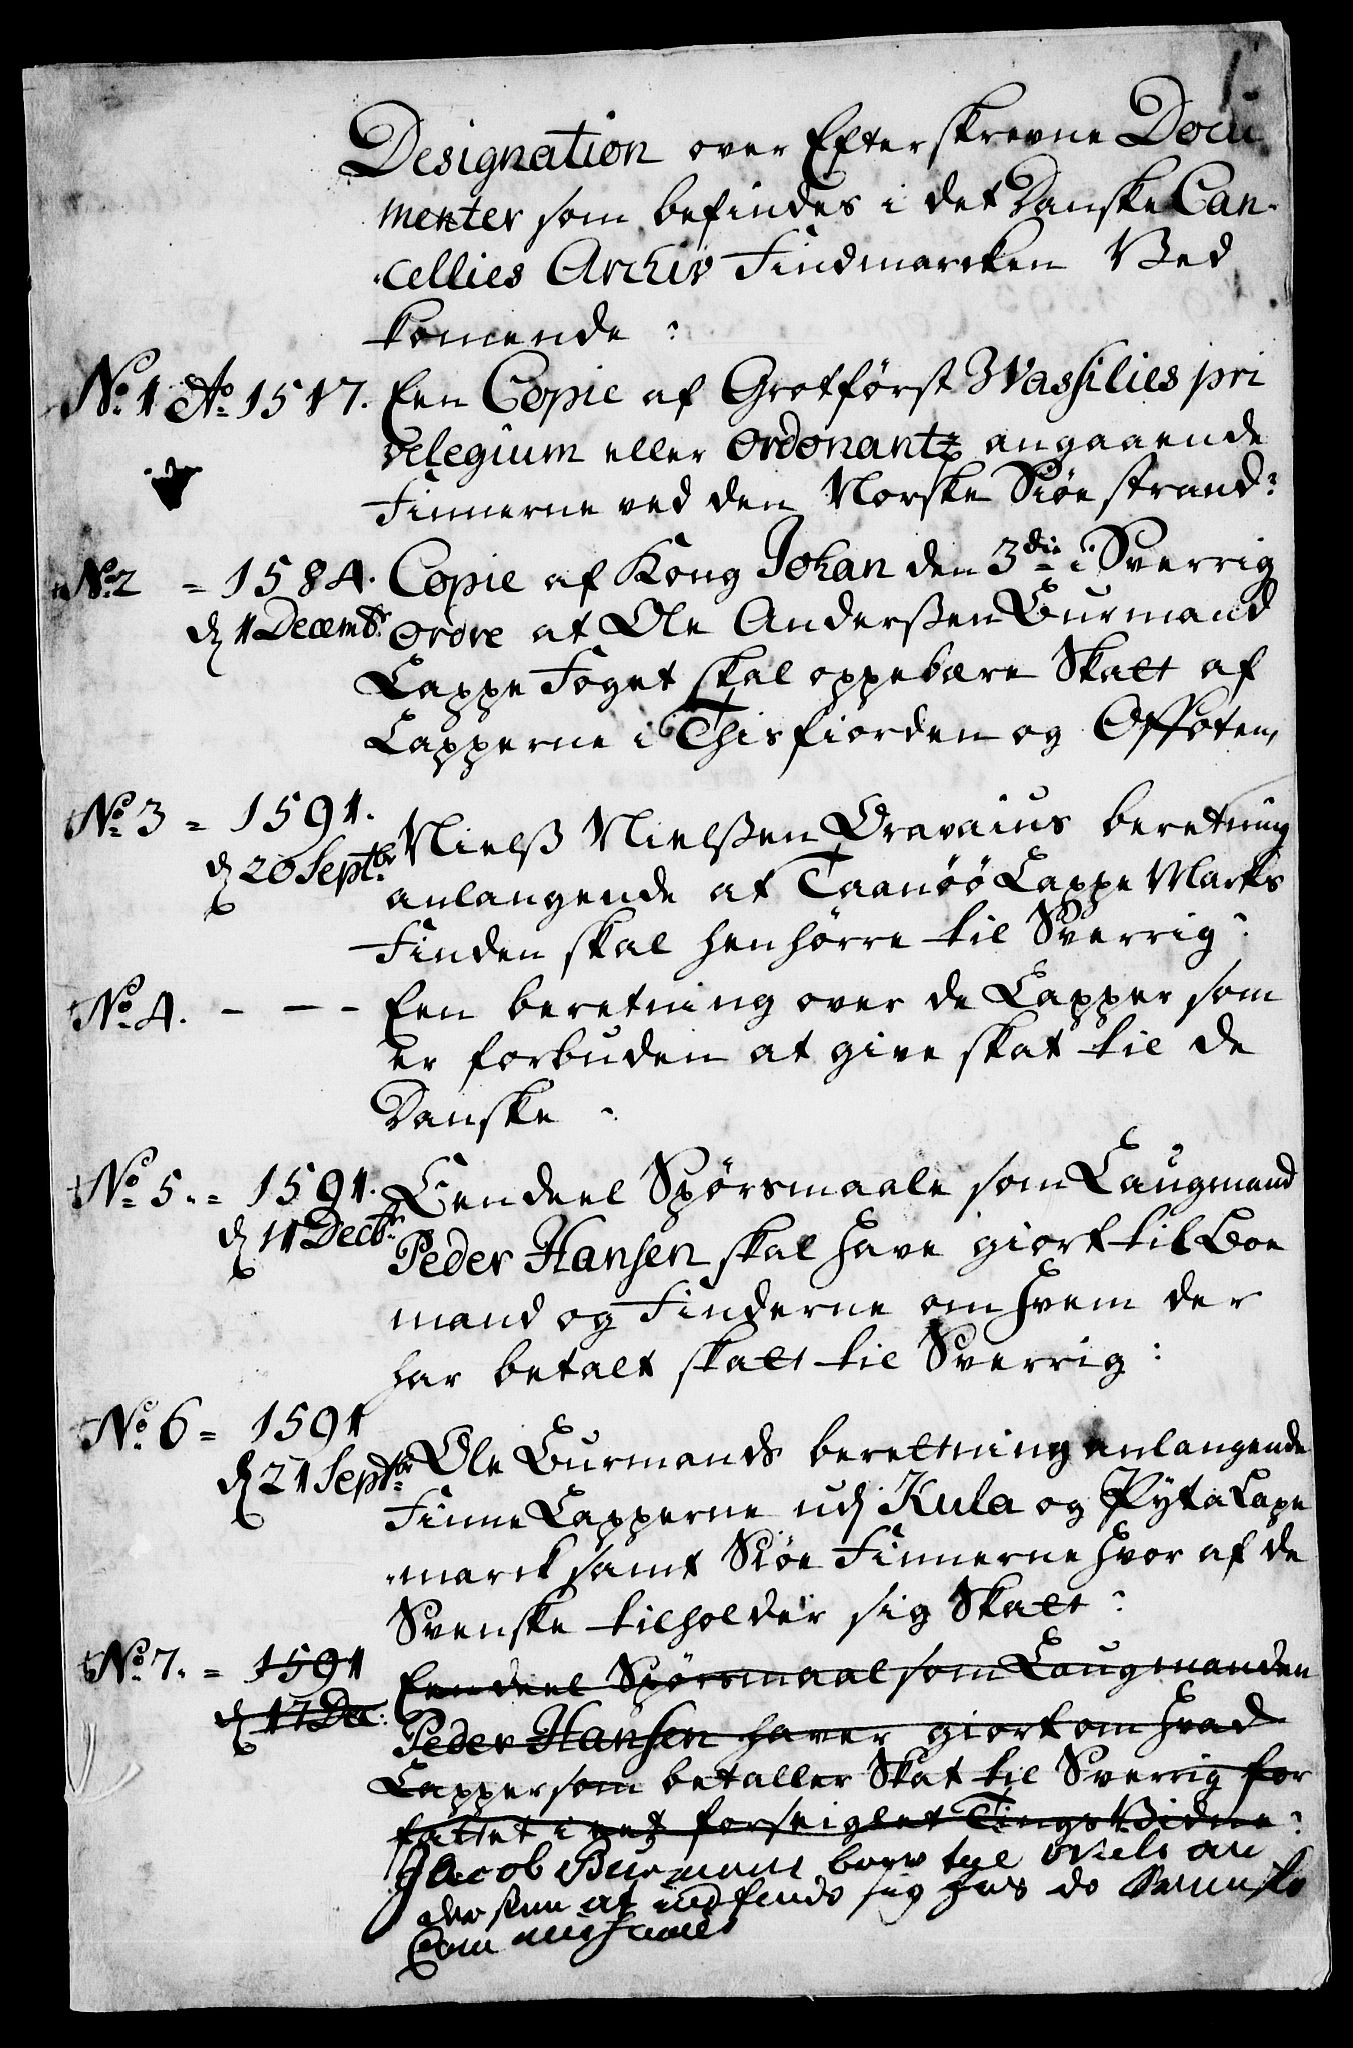 1.
Designation over Efterskrevne Docu
menter som befindes i det Danske Can-
cellies Archiv Findmarcken Ved
komende :
No. 1 Ao. 1517. Een Copie af Grotførst Wassilies pri
velegium eller ordonantz angaaende
Finnerne ved den Norske Siøe strand:
No. 2 = 1584. Copie af Kong Johan den 3die i Sverrig
d. 1 Decembr. ordre at Ole Anderßen Burmand
Lappe Foget skal oppebære Skatt af
Lapperne i Thisfiorden og Offoten,
No. 3 = 1591. Nielß Nielßen Oravaius beretning
d. 20 Septbr. anlangende at Taanöö Lappe Marks
Finden skal henhørre til Sverrig:
No. 4. - - - Een beretning over de Lapper som
er forbuden at give skat til de
Danske -
No. 5. = 1591. Een deel Spørsmaale som Laugmand
d. 11 Decbr. Peder Hansen skal have giort til Boe
mand og Finderne om hvem der
har betalt skatt til Sverrig:
No. 6 = 1591 Ole Burmands berettning anlangende
d. 21 Septbr. Finne Lapperne udj Kula og Pyta Lape
marck samt Siøe Finnerne hvor af de
Svenske tilholder sig Skatt:
No. 7. = 1591 Een deel Spørsmaal som Laugmanden
d. 17 Dec: Peder Hansen haver giort om hvad
Lapper som betaller Skat til Sverrig for
fattet i et forseiglet Tings Vidne:
Jacob Burmans brev til Niels an
dersen at indfinde sig hos de Svenske
Commissarier